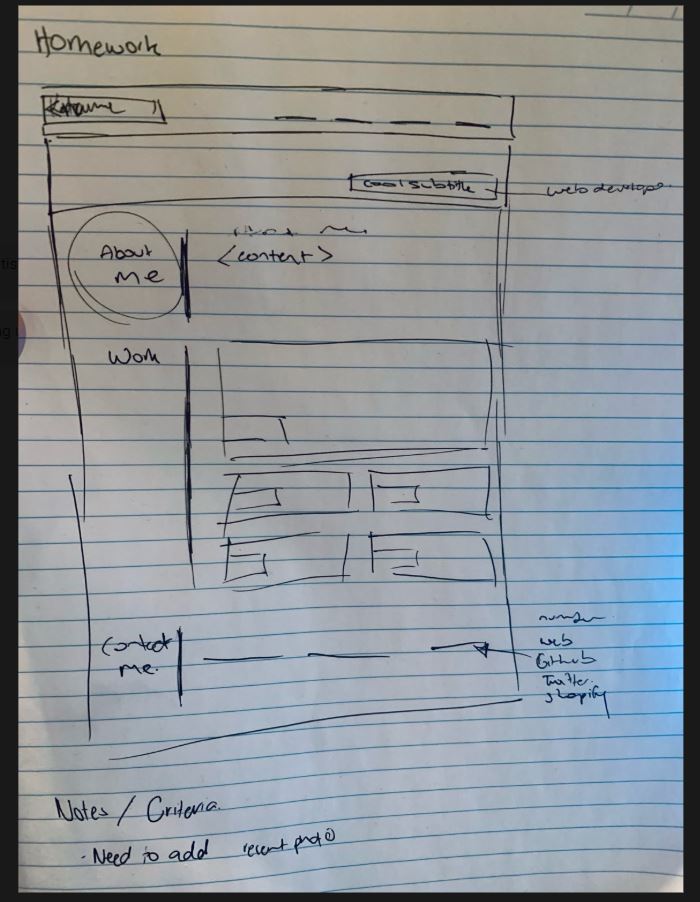 Homework
cool subtitle
About
Me
<content>
Work
Contact
Me.
number
web
Github
Twitter.
Shopify
Notes / Criteria
- Need to add recent photo